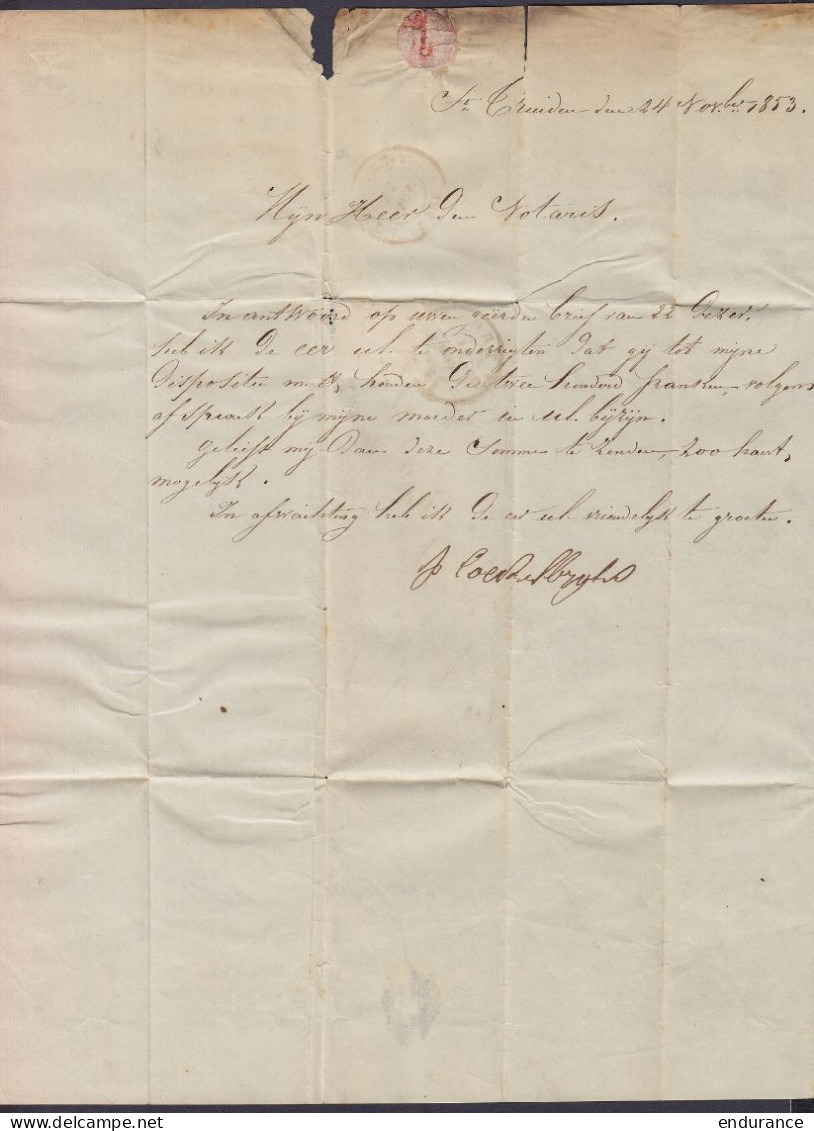 St Truiden den 24 Nov.ber 1853.
Mijn Heer den Notaris.
In antwoord op uwen geërden brief van 22 dezer,
heb ik de eer ul. te onderrigten dat gij tot mijne
dispositie houden de twee honderd franken, volgens
afspraak bij mijne moeder en ul. bijzijn.
gelieft mij dan deze somme te zenden, zoo haest,
mogelyk.
In afwachting heb ik de eer ul. vriendelyk te groeten.
delcampe.net
endurance